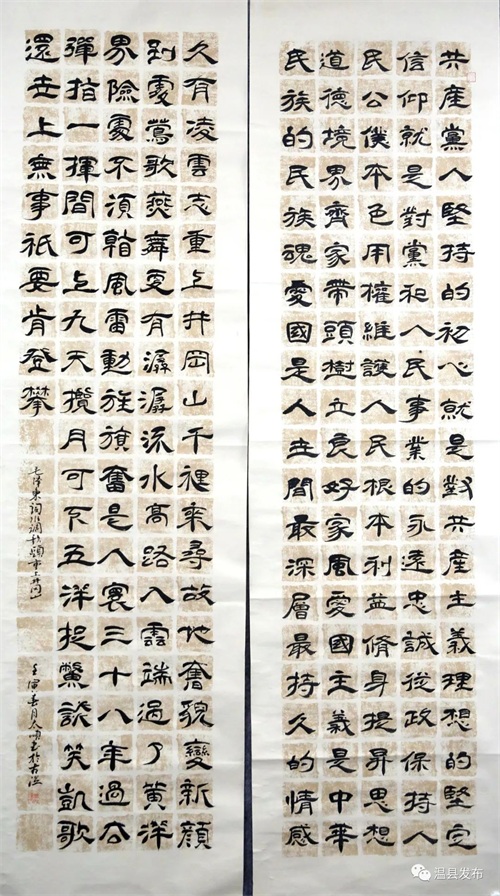 共產黨人堅持的初心就是對共產主義理想的堅定
信仰就是對黨和人民事業的永遠忠誠從政保持人
民公僕本色用權維護人民根本利益脩身提昇思想
道德境界齊家帶頭樹立良好家風愛國主義是中華
民族的民族魂愛國是人世間最深層最持久的情感
久有凌雲志重上井岡山千裡來尋故地舊貌變新顏
到處鶯歌燕舞更有潺潺流水高路入雲端過了黃洋
界險處不須看風雷動旌旗奮是人寰三十八年過去
彈指一揮間可上九天攬月可下五洋捉鱉談笑凱歌
還世上無事祇要肯登攀
毛澤東詞水調歌頭重上井岡山
壬寅春月書於古溫
温县发布